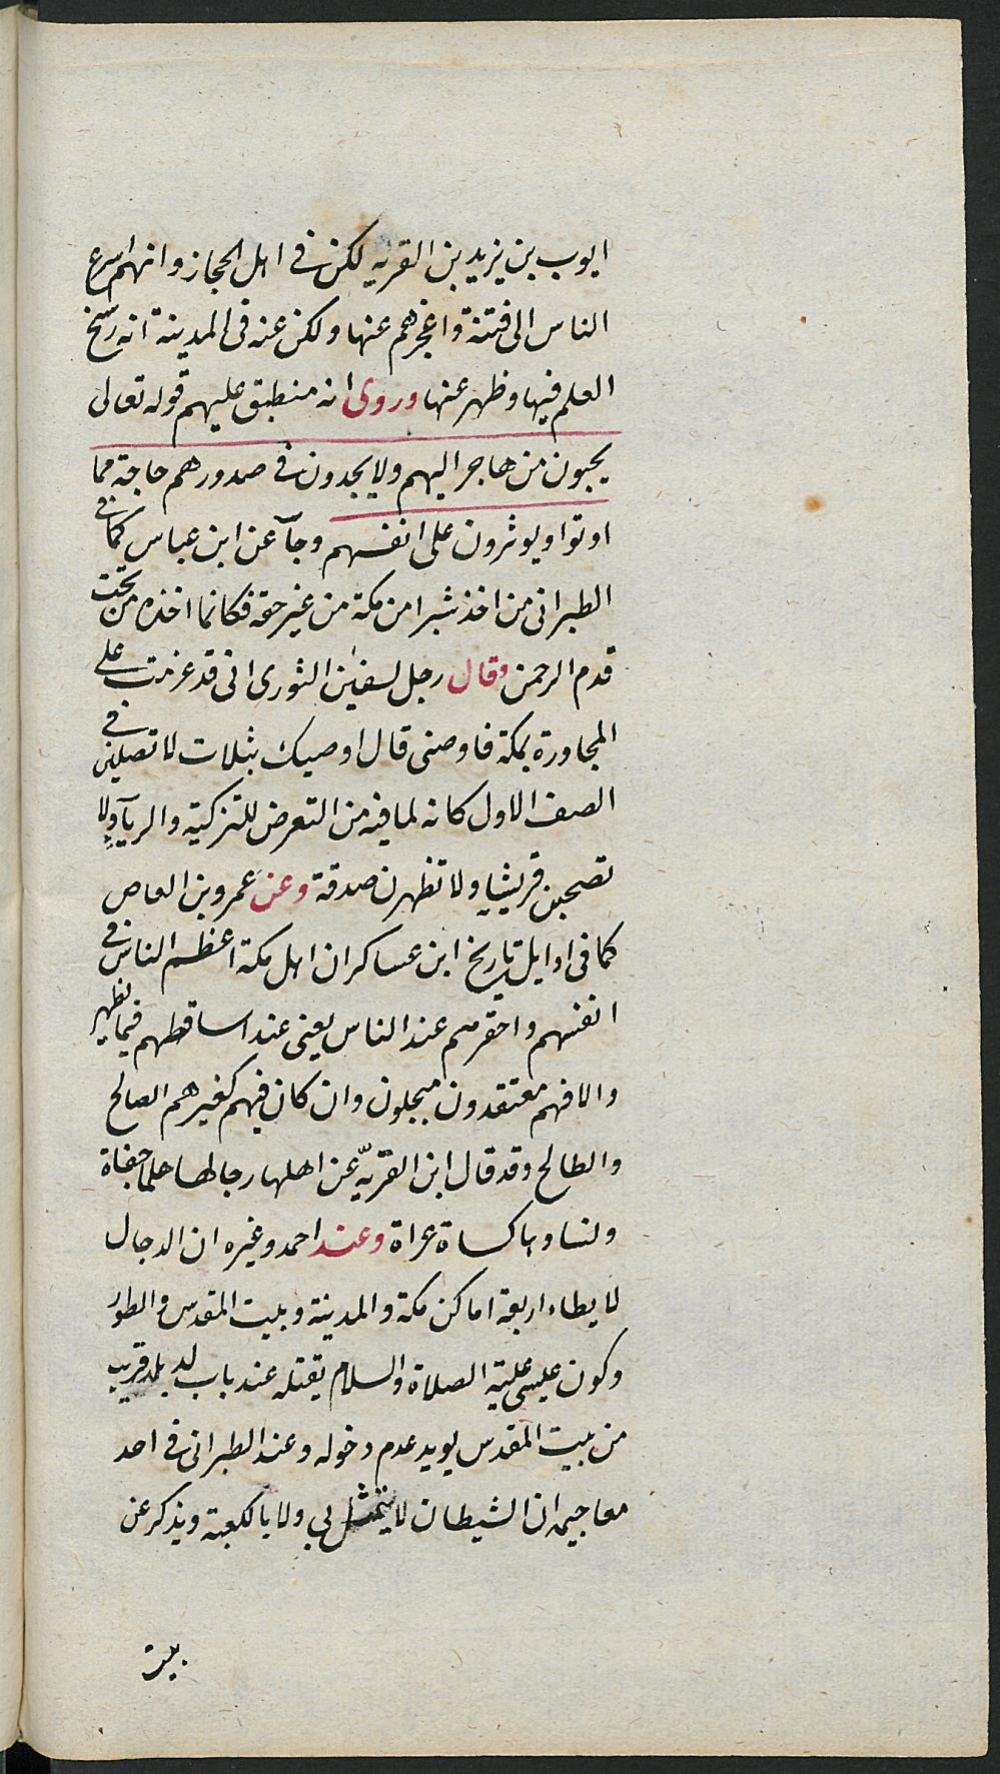 ايوب بن يزيد بن القريه لكن في اهل الحجاز وانهم اسرع
الناس الى فتنة واعجزهم عنها ولكن عنه في المدينة انه رسخ
العلم فيها وظهر عنها وروى انه منطبق عليهم قوله تعالى
يحبون من هاجر اليهم ولا يجدون في صدورهم حاجة مما
اوتوا ويوثرون على انفسهم وجآ عن ابن عباس كما في
الطبرانى من اخذ شبرا من مكة من غير حقه فكانما اخذه من تحت
قدم الرحمن وقال رجل لسفين الثورى انى قد عزمت على
المجاورة بمكة فاوصنى قال اوصيك بثلاث لا تصلين في
الصف الاول كانه لما فيه من التعرض للتزكية والريآ ولا
تصحبن قريشيا ولا تظهرن صدقة وعن عمرو بن العاص
كما فى اوايل تاريخ ابن عساكر ان اهل مكة اعظم الناس في
انفسهم واحقرهم عند الناس يعنى عند اساقطهم فيما يظهر
والا فهم معتقدون مبجلون وان كان فيهم كغيرهم الصالح
والطالح وقد قال ابن القريّه عن اهلها رجالها علما جفاة
ونساوها كساة عراة وعند احمد وغيره ان الدجال
لا يطاء اربعة اماكن مكة والمدينة وبيت المقدس والطور
وكون عيسى عليه الصلاة والسلام يقتله عند باب لد بلد قريب
من بيت المقدس يويد عدم دخوله وعند الطبرانى في احد
معاجيمه ان الشيطان لا يتمثل بي ولا بالكعبة ويذكر عن
بيت